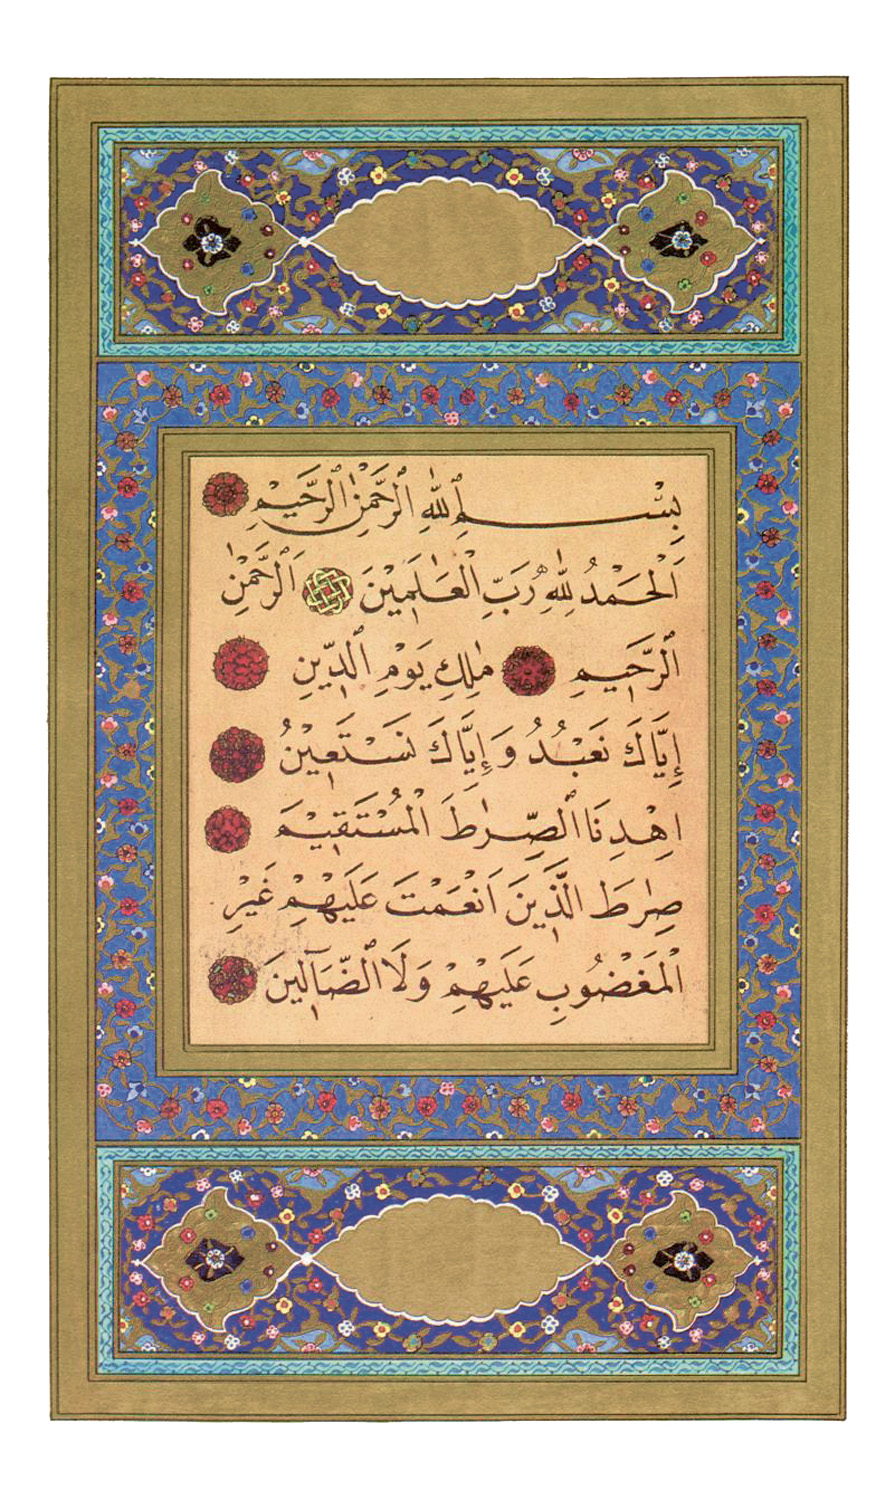 بِسْمِ ٱللّٰهِ ٱلرَّحْمٰنِ ٱلرَّحٖيمِ
اَلْحَمْدُ لِلّٰهِ رَبِّ الْعَالَمٖينَ اَلرَّحْمٰنِ
ٱلرَّحٖيمِ مٰلِكِ يَوْمِ ٱلدّٖينِ
اِيَّاكَ نَعْبُدُ وَاِيَّاكَ نَسْتَعٖينُ
اِهْدِنَا ٱلصِّرٰطَ الْمُسْتَقٖيمَ
صِرٰطَ الَّذٖينَ اَنْعَمْتَ عَلَيْهِمْ غَيْرِ
الْمَغْضُوبِ عَلَيْهِمْ وَلَا ٱلضَّٓالّٖينَ